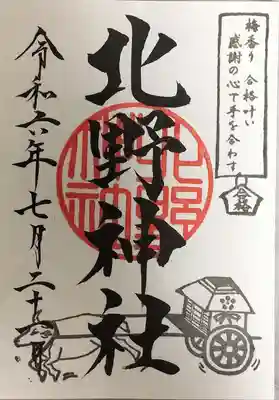 梅香り 合格叶い
感謝の心で手を合わす
合格
北野神社
北野神社
令和六年七月二十